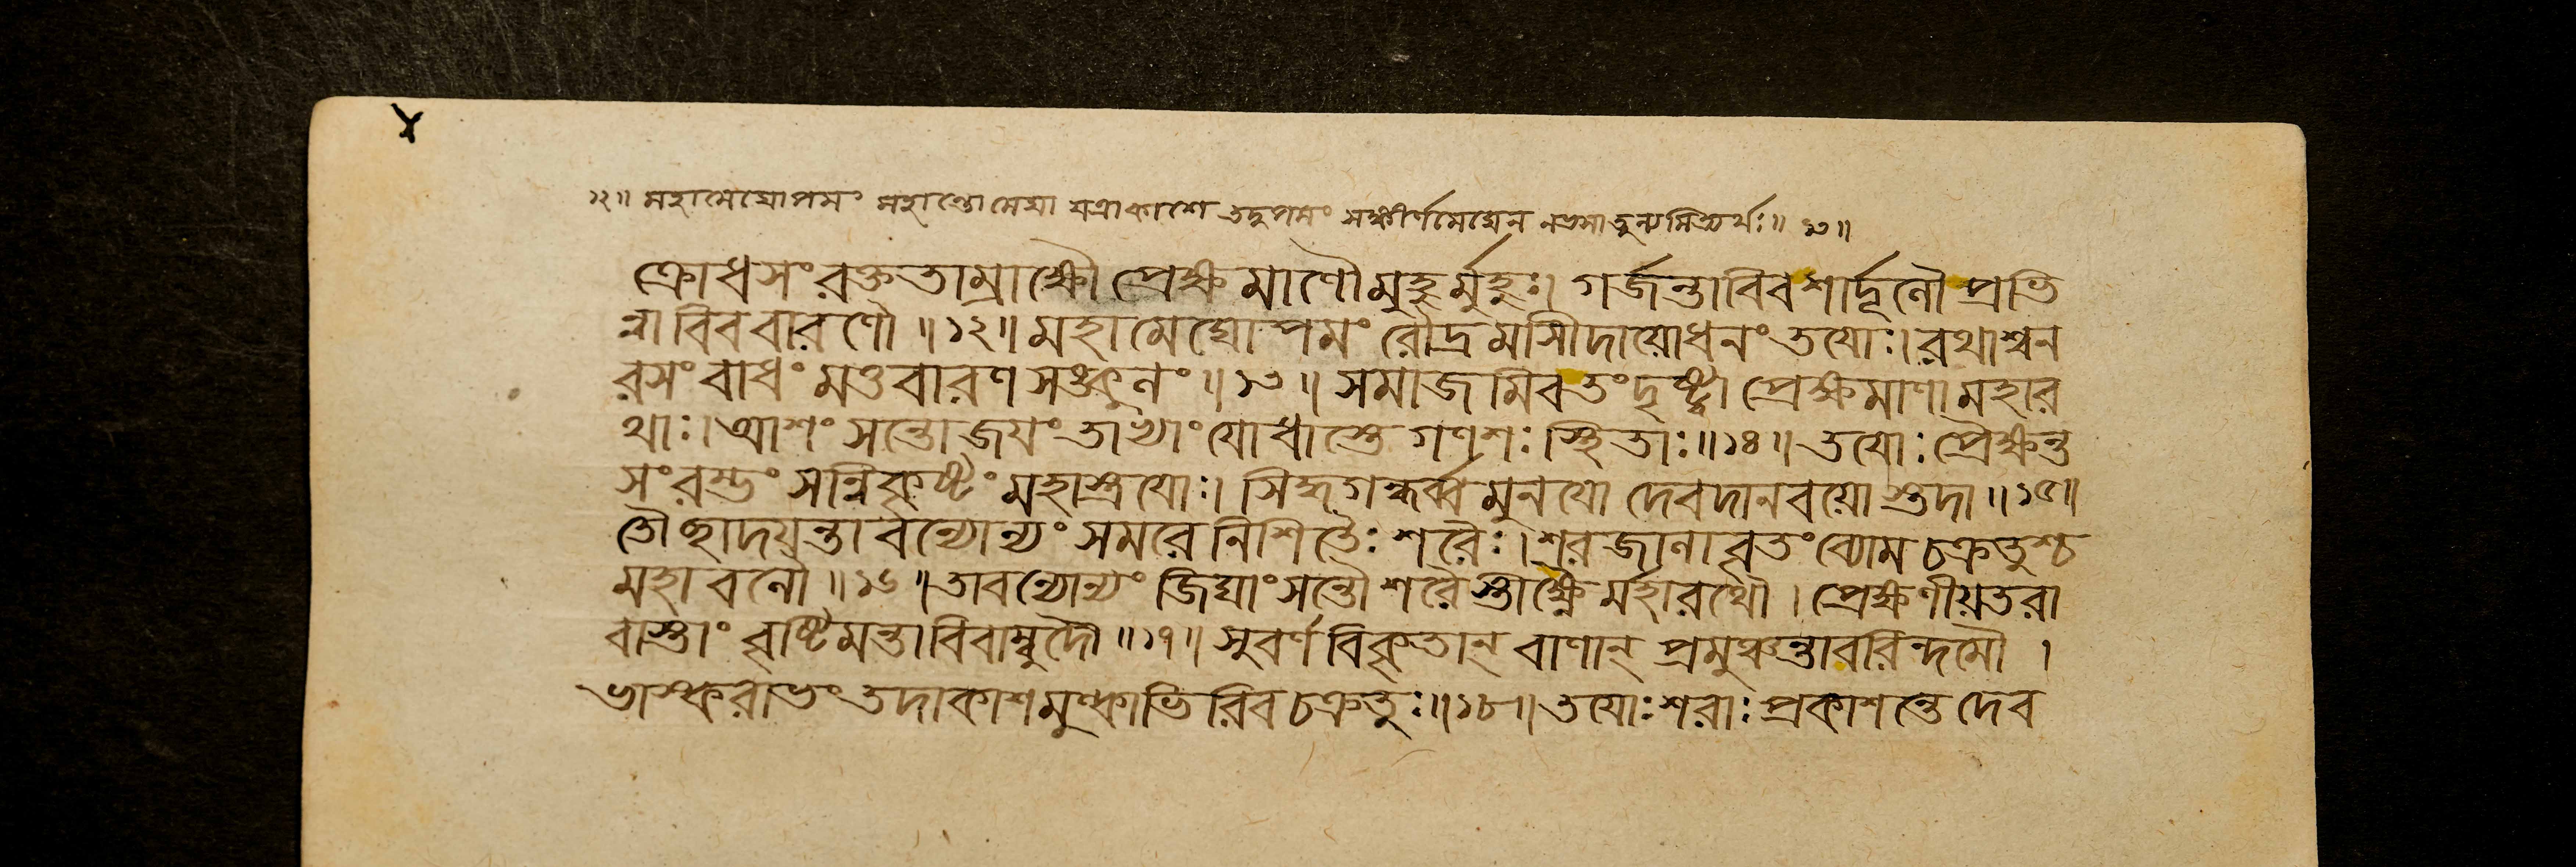 ১২॥ মহামেঘোপমং মহান্তো মেঘা যত্রাকাশে তদুপমং সঙ্কীর্ণমেঘেন নভসা তুল্যমিত্যর্থঃ॥ ১৩॥
ক্রোধসংরক্ততাম্রাক্ষৌ প্রেক্ষমাণৌ মুহুর্মুহুঃ। গর্জন্তাবিবশার্দূলৌ প্রভি
ন্নাবিববারণৌ॥১২॥ মহামেঘোপমং রৌদ্রমাসীদায়োধনং তযোঃ। রথাশ্বন
রসংবাধং মত্তবারণসঙ্কুলং॥১৩॥ সমাজমিবতংদৃষ্ট্বা প্রেক্ষমাণা মহার
থাঃ। আশংসন্তোজযংতাভ্যাং যোধাস্তে গণশঃ স্থিতাঃ॥১৪॥ তযোঃ প্রৈক্ষন্ত
সংরম্ভং সন্নিকৃষ্টং মহাস্ত্রযোঃ। সিদ্ধগন্ধর্ব্বমুনযো দেবদানবয়োস্তদা॥১৫॥
তৌ ছাদয়ন্তাবন্যোন্যং সমরে নিশিতৈঃ শরৈঃ। শরজালাবৃতং ব্যোম চক্রতুশ্চ
মহাবলৌ॥১৬॥ তাবন্যোন্যং জিঘাংসন্তৌ শরৈস্তীক্ষ্ণৈর্মহারথৌ। প্রেক্ষণীয়তরা
বাস্তাং বৃষ্টিমন্তাবিবাম্বুদৌ॥১৭॥ সুবর্ণবিকৃতান্ বাণান্ প্রমুঞ্চন্তাবরিন্দমৌ।
ভাস্করাভং তদাকাশমুল্কাভিরিব চক্রতুঃ॥১৮॥ তযোঃ শরাঃ প্রকাশন্তে দেব